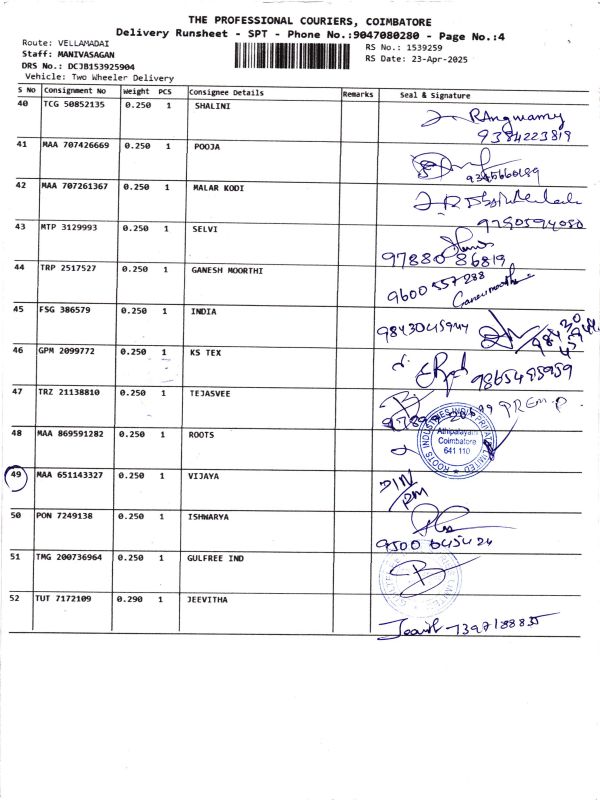 THE PROFESSIONAL COURIERS, COIMBATORE
Delivery Runsheet - SPT - Phone No.:9047080280 - Page No.:4
Route: VELLAMADAI
RS No.: 1539259
Staff: MANIVASAGAN
RS Date: 23-Apr-2025
DRS No.: DCJB153925904
Vehicle: Two Wheeler Delivery
S No Consignment No Weight PCS Consignee Details Remarks Seal & Signature
40 TCG 50852135 0.250 1 SHALINI
RAngwamy
9384223819
41 MAA 707426669 0.250 1 POOJA
9345660189
42 MAA 707261367 0.250 1 MALAR KODI
9790594050
43 MTP 3129993 0.250 1 SELVI
97880 86819
44 TRP 2517527 0.250 1 GANESH MOORTHI
9600 557 288
Ganesmoorthi
45 FSG 386579 0.250 1 INDIA
9843045944
98430
45944
46 GPM 2099772 0.250 1 KS TEX
9865495959
47 TRZ 21138810 0.250 1 TEJASVEE
PREM.P
48 MAA 869591282 0.250 1 ROOTS
ROOTS INDUSTRIES INDIA PRIVATE LIMITED
Athipalayam
Coimbatore
641 110
49 MAA 651143327 0.250 1 VIJAYA
DIN/RM
50 PON 7249138 0.250 1 ISHWARYA
9500 645424
51 TMG 200736964 0.250 1 GULFREE IND
52 TUT 7172109 0.290 1 JEEVITHA
Jeevith 7397188835